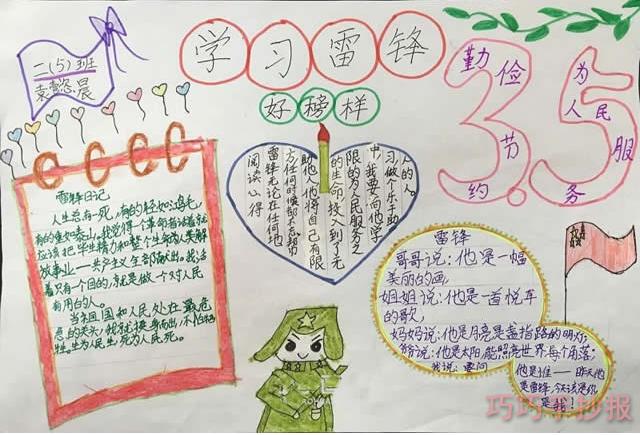 二(5)班
学习雷锋
好榜样
3.5
勤俭节约
为人民服务
雷锋日记
人生总有一死,有的轻如鸿毛,
有的重如泰山,我觉得一个革命者活着就
应该把毕生精力和整个生命为人类解
放事业——共产主义全部献出。我活
着只有一个目的,就是做一个对人民
有用的人。
当祖国和人民处在最危
急的关头,我就挺身而出,不怕牺
牲。生为人民生,死为人民死。
阅读心得
雷锋无论在任何地
方任何时候都不忘帮
助他人他将自己有限
的生命投入到了无
限的为人民服务之
中,我要向他学
习,做个乐于助
人的人。
雷锋
哥哥说:他是一幅
美丽的画,
姐姐说:他是一首悦耳
的歌,
妈妈说:他是月亮是盏指路的明灯;
爷爷说:他是太阳,能照亮世界每个角落;
我说:要问
他是谁——昨天他
是雷锋,今天该是你
是我!
巧巧手抄报